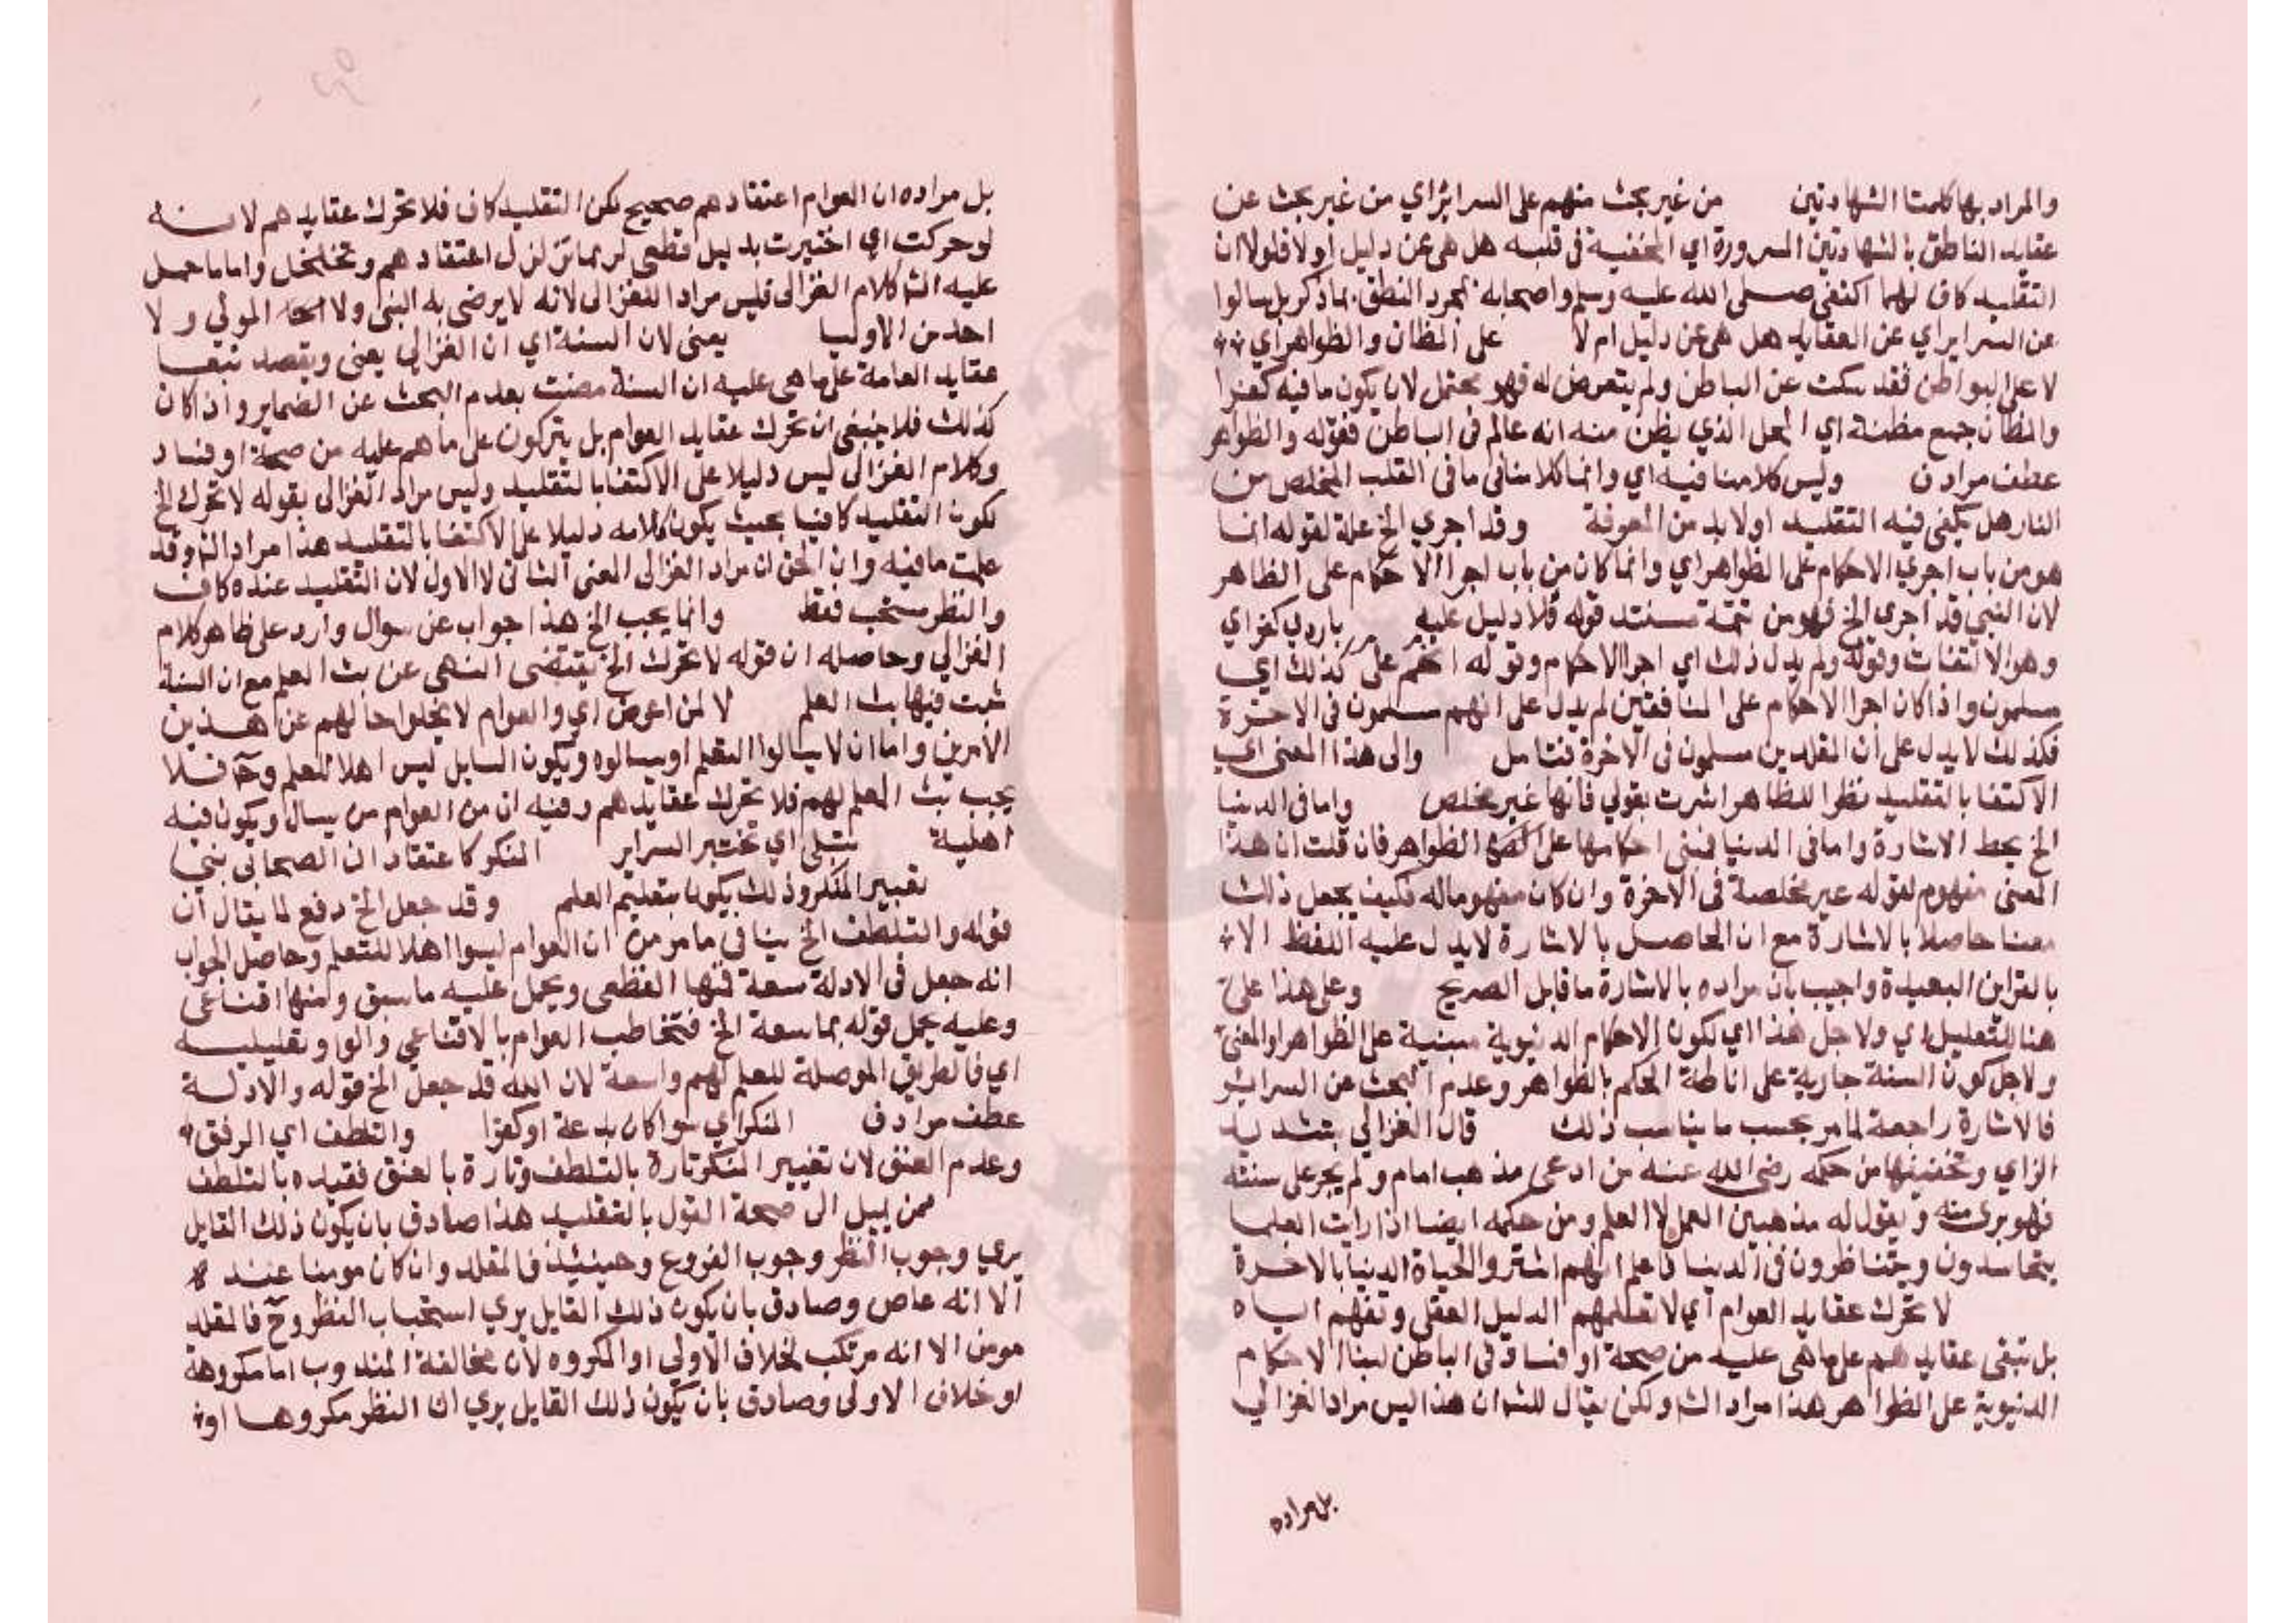 والمراد بها كلمتا الشهادتين من غير بحث منهم على السرائر اي من غير بحث عن
عقايد الناطق بالشهادتين السرورة اي المخفية في قلبه هل هي عن دليل او لا فلولا ان
التقليد كاف لهما اكتفى صلى الله عليه وسلم واصحابه بمجرد النطق بما ذكر بل سالوا
عن السراير اي عن العقايد هل هي عن دليل ام لا على المظان والظواهر اي
لا على البواطن فقد سكت عن الباطن ولم يتعرض له فهو محتمل لان يكون ما فيه كفرا
والمظان جمع مظنة اي المحل الذي يظن منه انه عالم في الباطن فقوله والظواهر
عطف مرادف وليس كلامنا فيه اي وانما كلامنا في ما في القلب المخلص من
النار هل يكفي فيه التقليد او لا بد من المعرفة وقد اجري الخ علة لقوله انما
هو من باب اجري الاحكام على الظواهر اي وانما كان من باب اجرا الاحكام على الظاهر
لان النبي قد اجرى الخ فهو من تتمة مستند قوله فلا دليل عليه بارد كفر اي
وهو الالتفات وقوله ولم يدل ذلك اي اجرا الاحكام وقوله انهم على كذلك اي
مسلمون واذا كان اجرا الاحكام على المنافقين لم يدل على انهم مسلمون في الاخرة
فكذلك لا يدل على ان المقلدين مسلمون في الاخرة فتامل والى هذا المعنى اي
الاكتفا بالتقليد نظرا للظاهر اشرت بقولي فانها غير مخلص واما في الدنيا
الخ محط الاشارة واما في الدنيا فبنى احكامها على الظواهر فان قلت ان هذا
المعنى مفهوم لقوله غير مخلصة في الاخرة وان كان مفهوما له فكيف يجعل ذلك
معنا حاصلا بالاشارة مع ان الحاصل بالاشارة لا يدل عليه اللفظ الا
بالقراين البعيدة واجيب بان مراده بالاشارة ما قابل الصريح وعلى هذا على
هنا للتعليل اي ولاجل هذا اي لكون الاحكام الدنيوية مبنية على الظواهر او المعنى
ولاجل كون السنة جارية على اناطة الحكم بالظواهر وعدم البحث عن السرائر
فالاشارة راجعة لما مر بحسب ما يناسب ذلك قال الغزالي بتشديد
الزاي وتخفيفها من حكمه رضي الله عنه من ادعى مذهب امام ولم يجر على سنته
فهو بري منه ويقول له مذهبين العمل لا العلم ومن حكمه ايضا اذا رايت العلما
يتحاسدون ويتناظرون في الدنيا فاعلم انهم اشتروا الحياة الدنيا بالاخرة
لا تحرك عقايد العوام اي لا تعلمهم الدليل العقلي وتفهم اياه
بل تبقى عقايدهم على ما هي عليه من صحة او فساد في الباطن لبنا الاحكام
الدنيوية على الظواهر هذا مراد الش ولكن يقال للش ان هذا ليس مراد الغزالي
بل مراده
بل مراده ان العوام اعتقادهم صحيح لكن التقليد كاف فلا تحرك عقايدهم لانه
لو حركت اي اختبرت بدليل قطعي لربما تزلزل اعتقادهم وتخلخل واما ما حمل
عليه الش كلام الغزالي فليس مراد الغزالي لانه لا يرضى به النبي ولا المولي ولا
احد من الاوليا يعنى لان السنة اي ان الغزالي يعنى ويقصد تبعا
عقايد العامة على ما هي عليه ان السنة مضت بعدم البحث عن الضماير واذا كان
كذلك فلا ينبغي ان تحرك عقايد العوام بل يتركون على ما هم عليه من صحة او فساد
وكلام الغزالي ليس دليلا على الاكتفا بالتقليد وليس مراد الغزالي بقوله لا تحرك الخ
لكون التقليد كافيا بحيث يكون كلامه دليلا على الاكتفا بالتقليد هذا مراد الش وقد
علمت ما فيه وان الحق ان مراد الغزالي المعنى الثاني لا الاول لان التقليد عنده كاف
والنظر مستحب فقط وانما يجب الخ هذا جواب عن سوال وارد على ظاهر كلام
الغزالي وحاصله ان قوله لا تحرك الخ يقتضي النهي عن بث العلم مع ان السنة
ثبت فيها بث العلم لا لمن اعرض اي والعوام لا يخلوا حالهم عن هذين
الامرين واما ان لا يسالوا التعلم او يسالوه ويكون السايل ليس اهلا للعلم وح فلا
يجب بث العلم لهم فلا تحرك عقايدهم وفيه ان من العوام من يسال ويكون فيه
اهلية تبتلى اي تختبر السراير المنكر كاعتقاد ان الصحابي نبي
تغيير المنكر وذلك يكون بتعليم العلم وقد جعل الخ دفع لما يقال ان
قوله والتلطف الخ ينافي ما مر من ان العوام ليسوا اهلا للتعلم وحاصل الجواب
انه جعل في الادلة سعة فمنها القطعي ويحمل عليه ما سبق ومنها اقناعي
وعليه يحمل قوله بما سعة الخ فتخاطب العوام بالاقناعي والواو تعليلية
اي فالطريق الموصلة للعلم لهم واسعة لان الله قد جعل الخ قوله والادلة
عطف مرادف المنكر اي سوا كان بدعة او كفرا والتلطف اي الرفق
وعدم العنف لان تغيير المنكر تارة بالتلطف وتارة بالعنف فقيده بالتلطف
ممن يميل الى صحة القول بالتقليد هذا صادق بان يكون ذلك القايل
يري وجوب النظر وجوب الفروع وحينيذ فالمقلد وان كان مومنا عنده
الا انه عاص وصادق بان يكون ذلك القايل يري استحباب النظر وح فالمقلد
مومن الا انه مرتكب لخلاف الاولي او المكروه لان مخالفة المندوب اما مكروهة
او خلاف الاولى وصادق بان يكون ذلك القايل يري ان النظر مكروها او